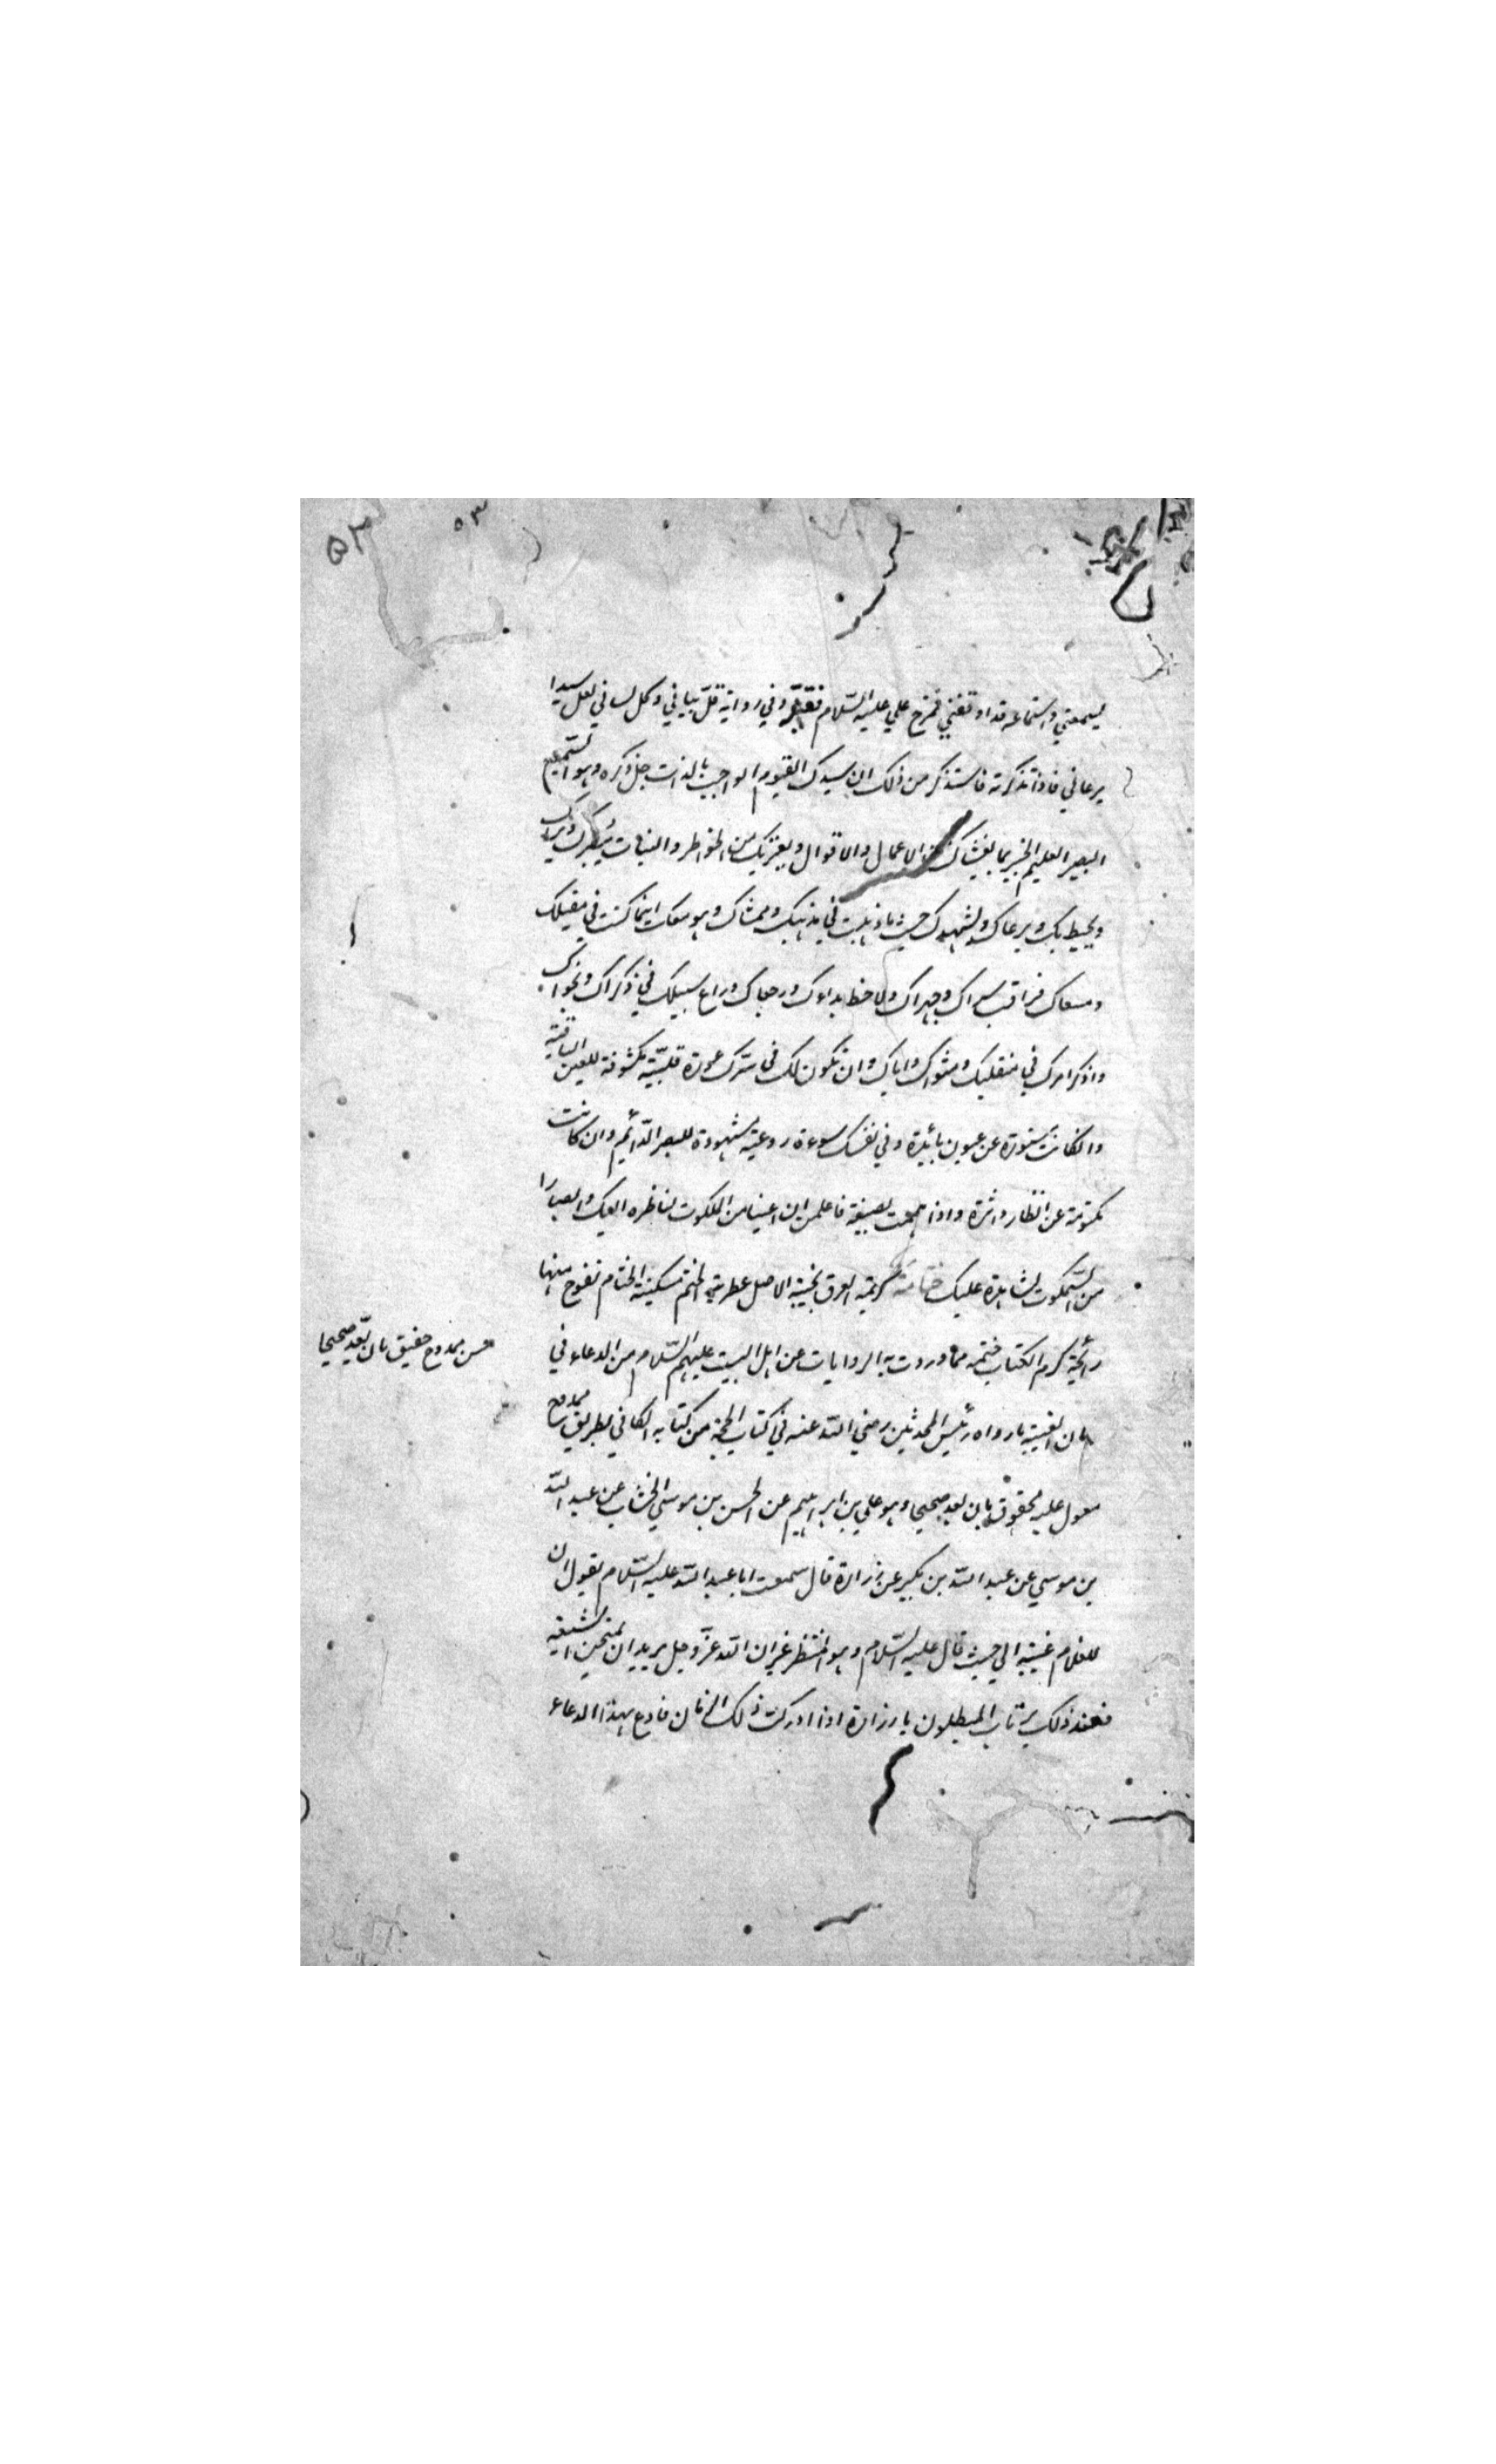 ۵۳
۵۳
ليسمعني واستماعه قد اوقفني فمزح علي عليه السّلام فقبّله وفي رواية قلّ بياني وكلّ لساني لعل سيدا
يرعاني فاذا تذكرته فاستذكر من ذلك ان سيدك القيوم الواجب بالذات جلّ ذكره وهو السّميع
البصير العليم الخبير بما يغشاك من الاعمال والاقوال ويعتريك من الخواطر والنيات يبصرك ويراك
ويحيط بك ويرعاك ويشهدك حيث ما ذهبت في مذهبك وممشاك وهو معك اينما كنت في مقيلك
ومسعاك فراقب سراك وجهراك ولاحظ بداوك ورجعاك وراع سبيلك في ذكراك ونجواك
واذكر امرك في منقلبك ومثواك واياك وان تكون لك في سترك عورة قلبيّة مكشوفة للعين الباقية
وان كانت مستورة عن عيون بائدة وفي نفسك سوءة روعية مشهودة للبصر الدّائم وان كانت
مكتومة عن انظار داثرة واذا هممت بصيغة فاعلمن ان اعينا من الملكوت لناظرة اليك وابصارا
من السّمكوت لشاهدة عليك ختامة كريمة العرق نجيبة الاصل عطرية الختم مسكينة الختام تفوح منها
رائحة كرم الكتاب فتختمه مما وردت به الروايات عن اهل البيت عليهم السّلام من الدعاء في
زمان الغيبة ما رواه رئيس المحدثين رضي الله عنه في كتاب الحجة من كتابه الكافي بطريق ممدوح
معول عليه محقوق بان يعد صحيحا وهو علي بن ابراهيم عن الحسن بن موسي الخشاب عن عبد الله
بن موسي عن عبد الله بن بكير عن زرارة قال سمعت ابا عبد الله عليه السّلام يقول ان
للغلام غيبة الي حيث قال عليه السّلام وهو المنتظر غير ان الله عزّ وجل يريد ان يمتحن الشيعة
فعند ذلك يرتاب المبطلون يا زرارة اذا ادركت ذلك الزمان فادع بهذا الدعاء
حسن ممدوح حقيق بان يعّد صحيحا